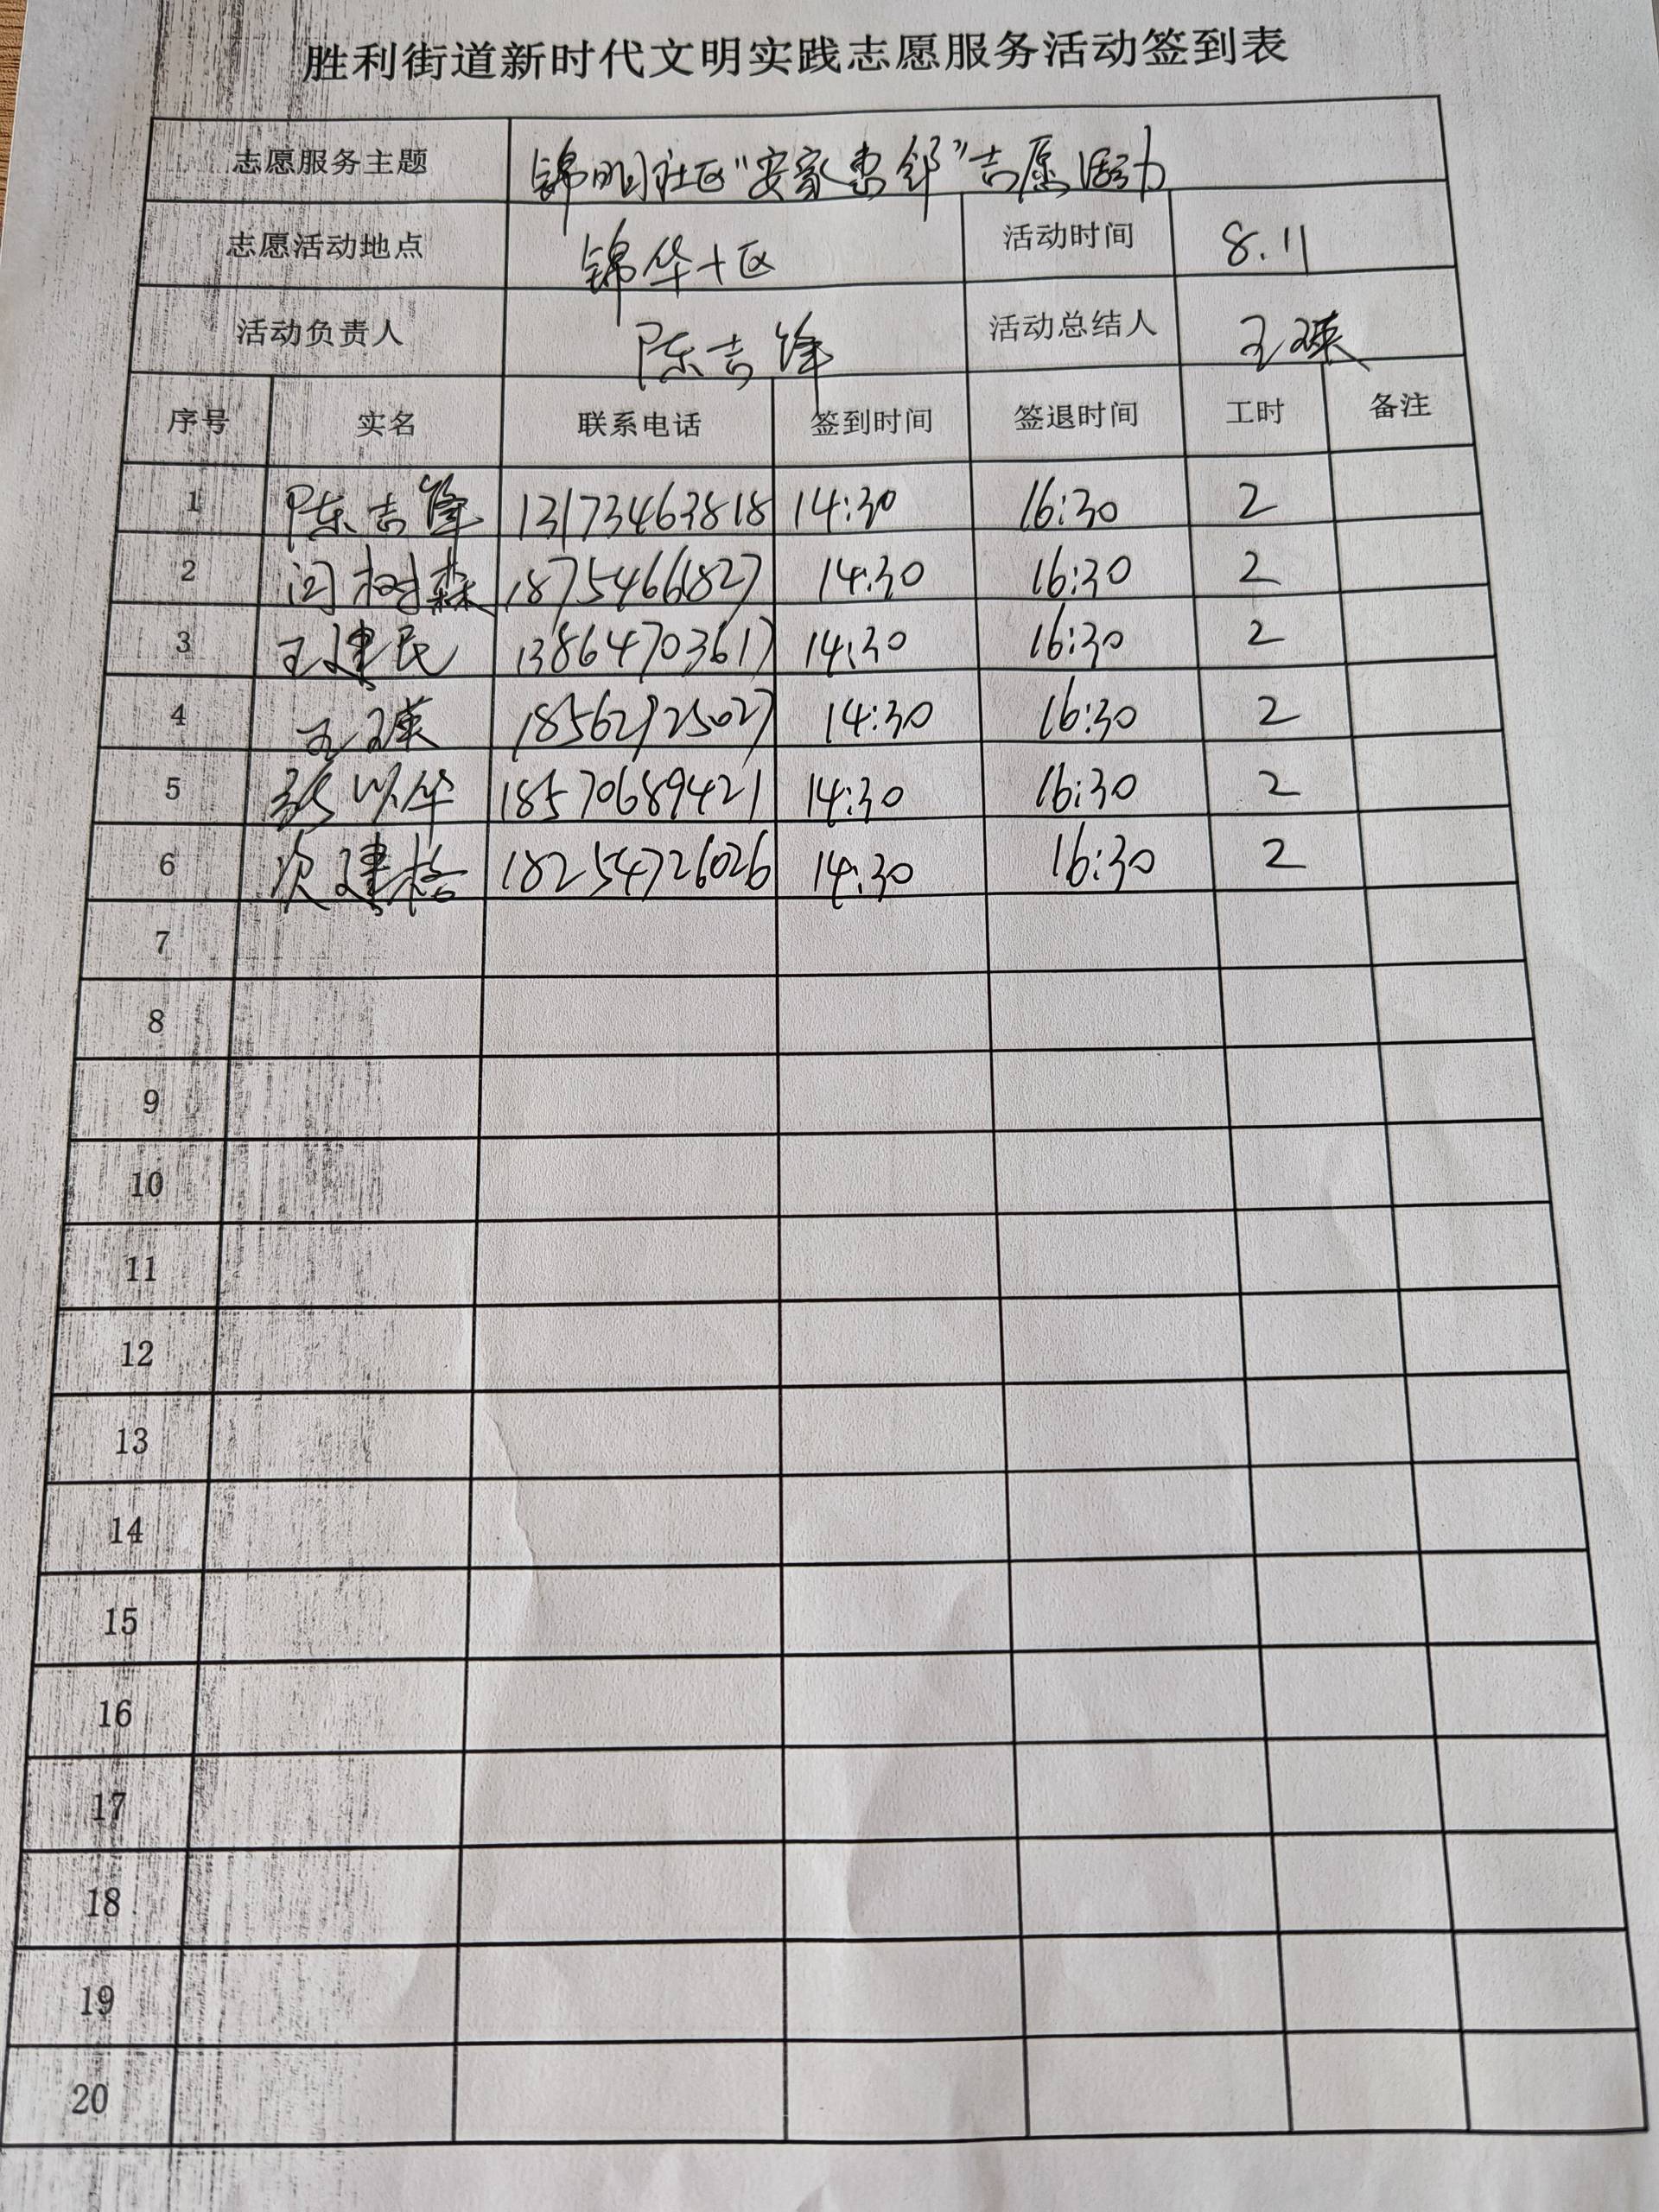 胜利街道新时代文明实践志愿服务活动签到表
志愿服务主题 锦明社区“安家惠邻”志愿活动
志愿活动地点 锦华十区 活动时间 8.11
活动负责人 陈吉锋 活动总结人 王瑛
序号 实名 联系电话 签到时间 签退时间 工时 备注
1 陈吉锋 13173463818 14:30 16:30 2
2 闫树森 18754661827 14:30 16:30 2
3 王建民 13864703617 14:30 16:30 2
4 王瑛 18562125027 14:30 16:30 2
5 张以华 18570689421 14:30 16:30 2
6 建格 18254726026 14:30 16:30 2
7
8
9
10
11
12
13
14
15
16
17
18
19
20